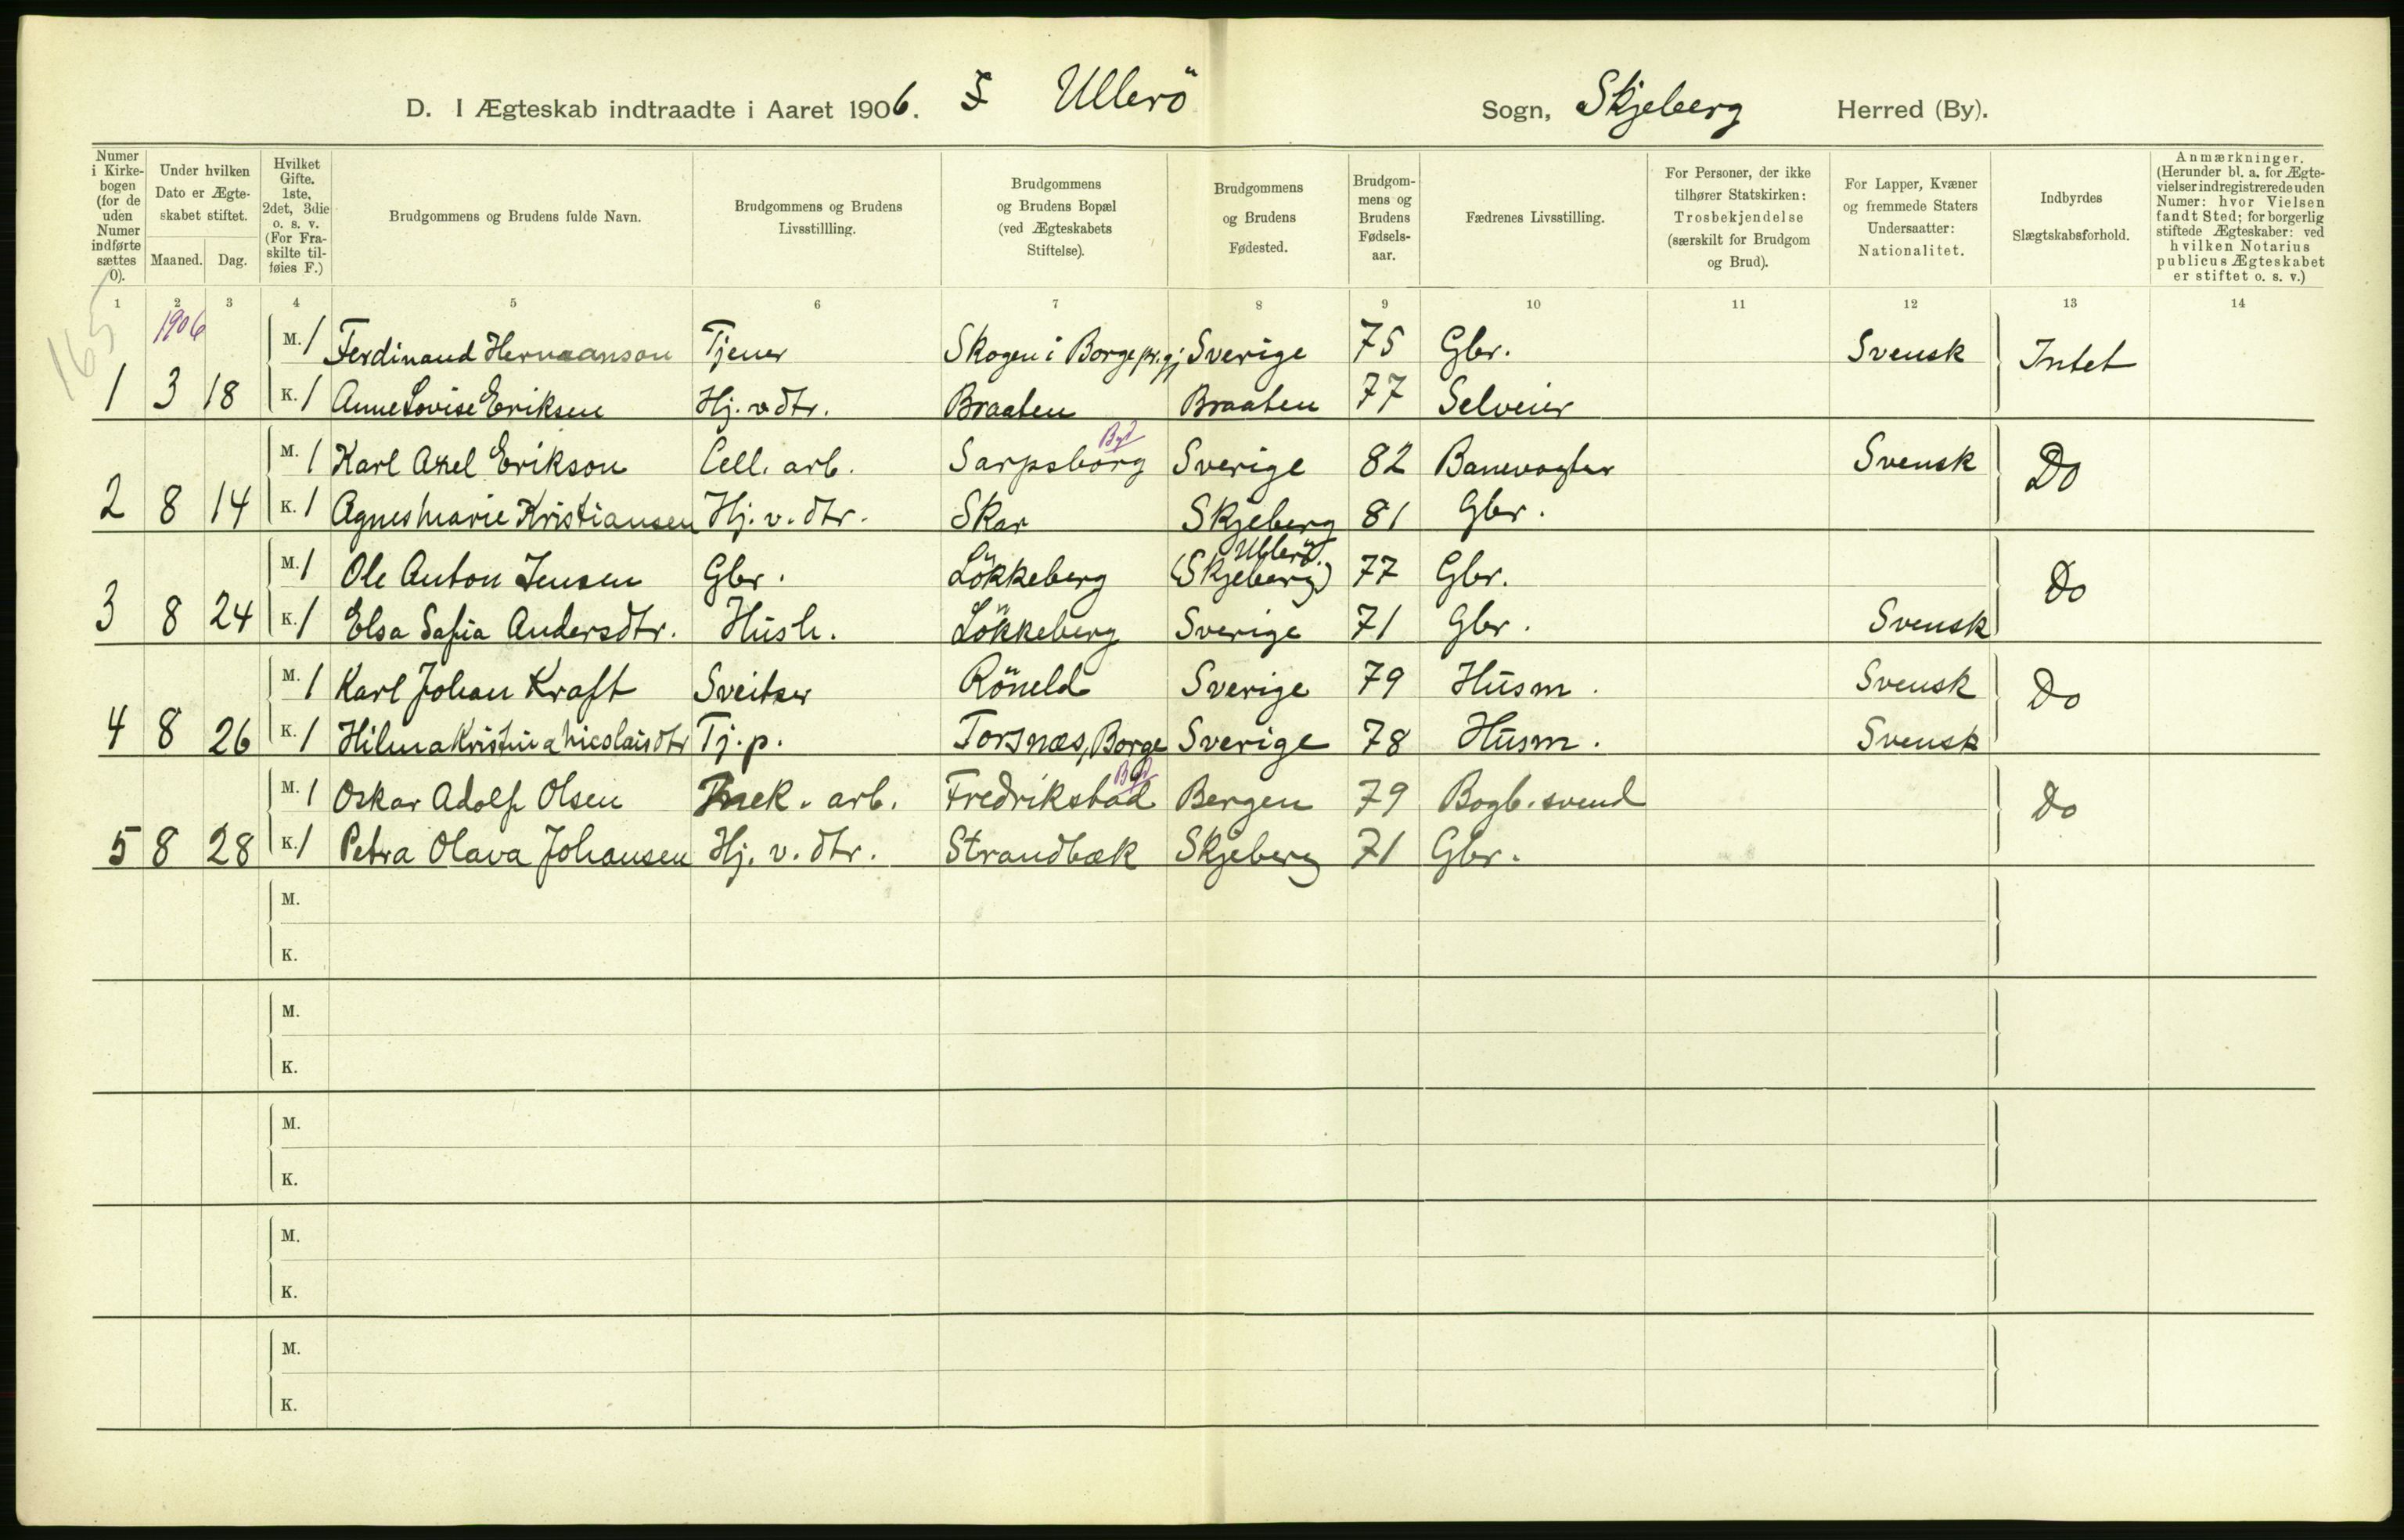 D. I Ægteskab indtraadte i Aaret 1906. Ullerö Sogn, Skjeberg Herred (By).
Numer i Kirkebogen (for de uden Numer indførte sættes 0).
Under hvilken Dato er Ægteskabet stiftet.
Maaned. Dag.
Hvilket Gifte. 1ste, 2det, 3die o. s. v. (For Fraskilte tilføies F.)
Brudgommens og Brudens fulde Navn.
Brudgommens og Brudens Livsstillling.
Brudgommens og Brudens Bopæl (ved Ægteskabets Stiftelse).
Brudgommens og Brudens Fødested.
Brudgommens og Brudens Fødselsaar.
Fædrenes Livsstilling.
For Personer, der ikke tilhører Statskirken: Trosbekjendelse (særskilt for Brudgom og Brud).
For Lapper, Kvæner og fremmede Staters Undersaatter: Nationalitet.
Indbyrdes Slægtskabsforhold.
Anmærkninger. (Herunder bl. a. for Ægtevielser indregistrerede uden Numer: hvor Vielsen fandt Sted; for borgerlig stiftede Ægteskaber: ved hvilken Notarius publicus Ægteskabet er stiftet o. s. v.)
1 2 3 4 5 6 7 8 9 10 11 12 13 14
165 1906
M. 1 Ferdinand Hermanson Tjener Skogen i Borge pr.gj Sverige 75 Gbr. Svensk Intet
1 3 18 K. 1 Anne Lovise Eriksen Hj. v dtr. Braaten Braaten 77 Selveier
M. 1 Karl Axel Erikson Cell. arb. Sarpsborg Byd Sverige 82 Banevogter Svensk Do
2 8 14 K. 1 Agnes Marie Kristiansen Hj. v. dtr. Skar Skjeberg 81 Gbr.
M. 1 Ole Anton Jensen Gbr. Lökkeberg Ullerö (Skjeberg) 77 Gbr. Do
3 8 24 K. 1 Elsa Safia Andersdtr. Hush. Lökkeberg Sverige 71 Gbr. Svensk
M. 1 Karl Johan Kraft Sveitser Röneld Sverige 79 Husm. Svensk Do
4 8 26 K. 1 Hilma Kristina Nicolaisdtr Tj. p. Torsnæs, Borge Sverige 78 Husm. Svensk
M. 1 Oskar Adolf Olsen Mek. arb. Fredrikstad Byd Bergen 79 Bogb. svend Do
5 8 28 K. 1 Petra Olava Johansen Hj. v. dtr. Strandbæk Skjeberg 71 Gbr.
M.
K.
M.
K.
M.
K.
M.
K.
M.
K.